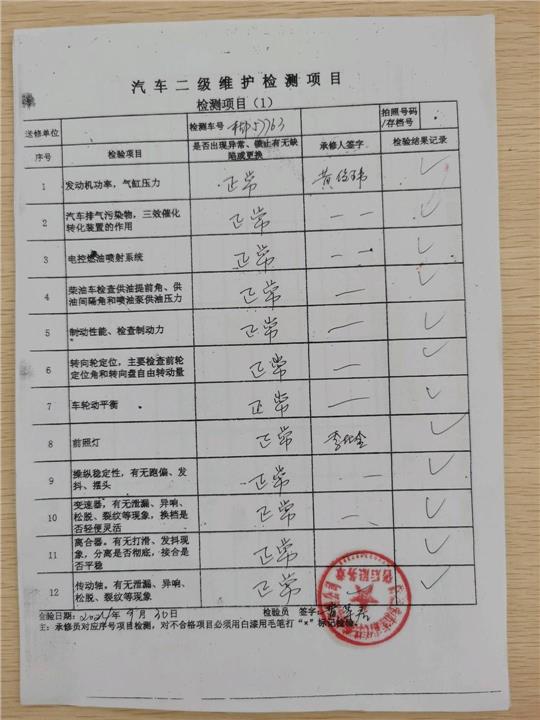 汽车二级维护检测项目
检测项目(1)
送修单位 检测车号 拍照号码/存档号
序号 检验项目 是否出现异常、镀止有无缺陷或更换 承修人签字 检验结果记录
1 发动机功率,气缸压力 正常 ✓
2 汽车排气污染物,三效催化转化装置的作用 正常 一一 ✓
3 电控燃油喷射系统 正常 一一 ✓
4 柴油车检查供油提前角、供油间隔角和喷油泵供油压力 正常 一一 ✓
5 制动性能、检查制动力 正常 一一 ✓
6 转向轮定位,主要检查前轮定位角和转向盘自由转动量 正常 一一 ✓
7 车轮动平衡 正常 一一 ✓
8 前照灯 正常 ✓
9 操纵稳定性,有无跑偏、发抖、摆头 正常 一一 ✓
10 变速器,有无泄漏、异响、松脱、裂纹等现象,换档是否轻便灵活 正常 一一 ✓
11 离合器。有无打滑、发抖现象,分离是否彻底,接合是否平稳 正常 ✓
12 传动轴。有无泄漏、异响、松脱、裂纹等现象 正常 ✓
检验日期:2024年9月30日 检验员 签字:
主:承修员对应序号项目检测,对不合格项目必须用白漆用毛笔打“×”标记检验。
售后服务